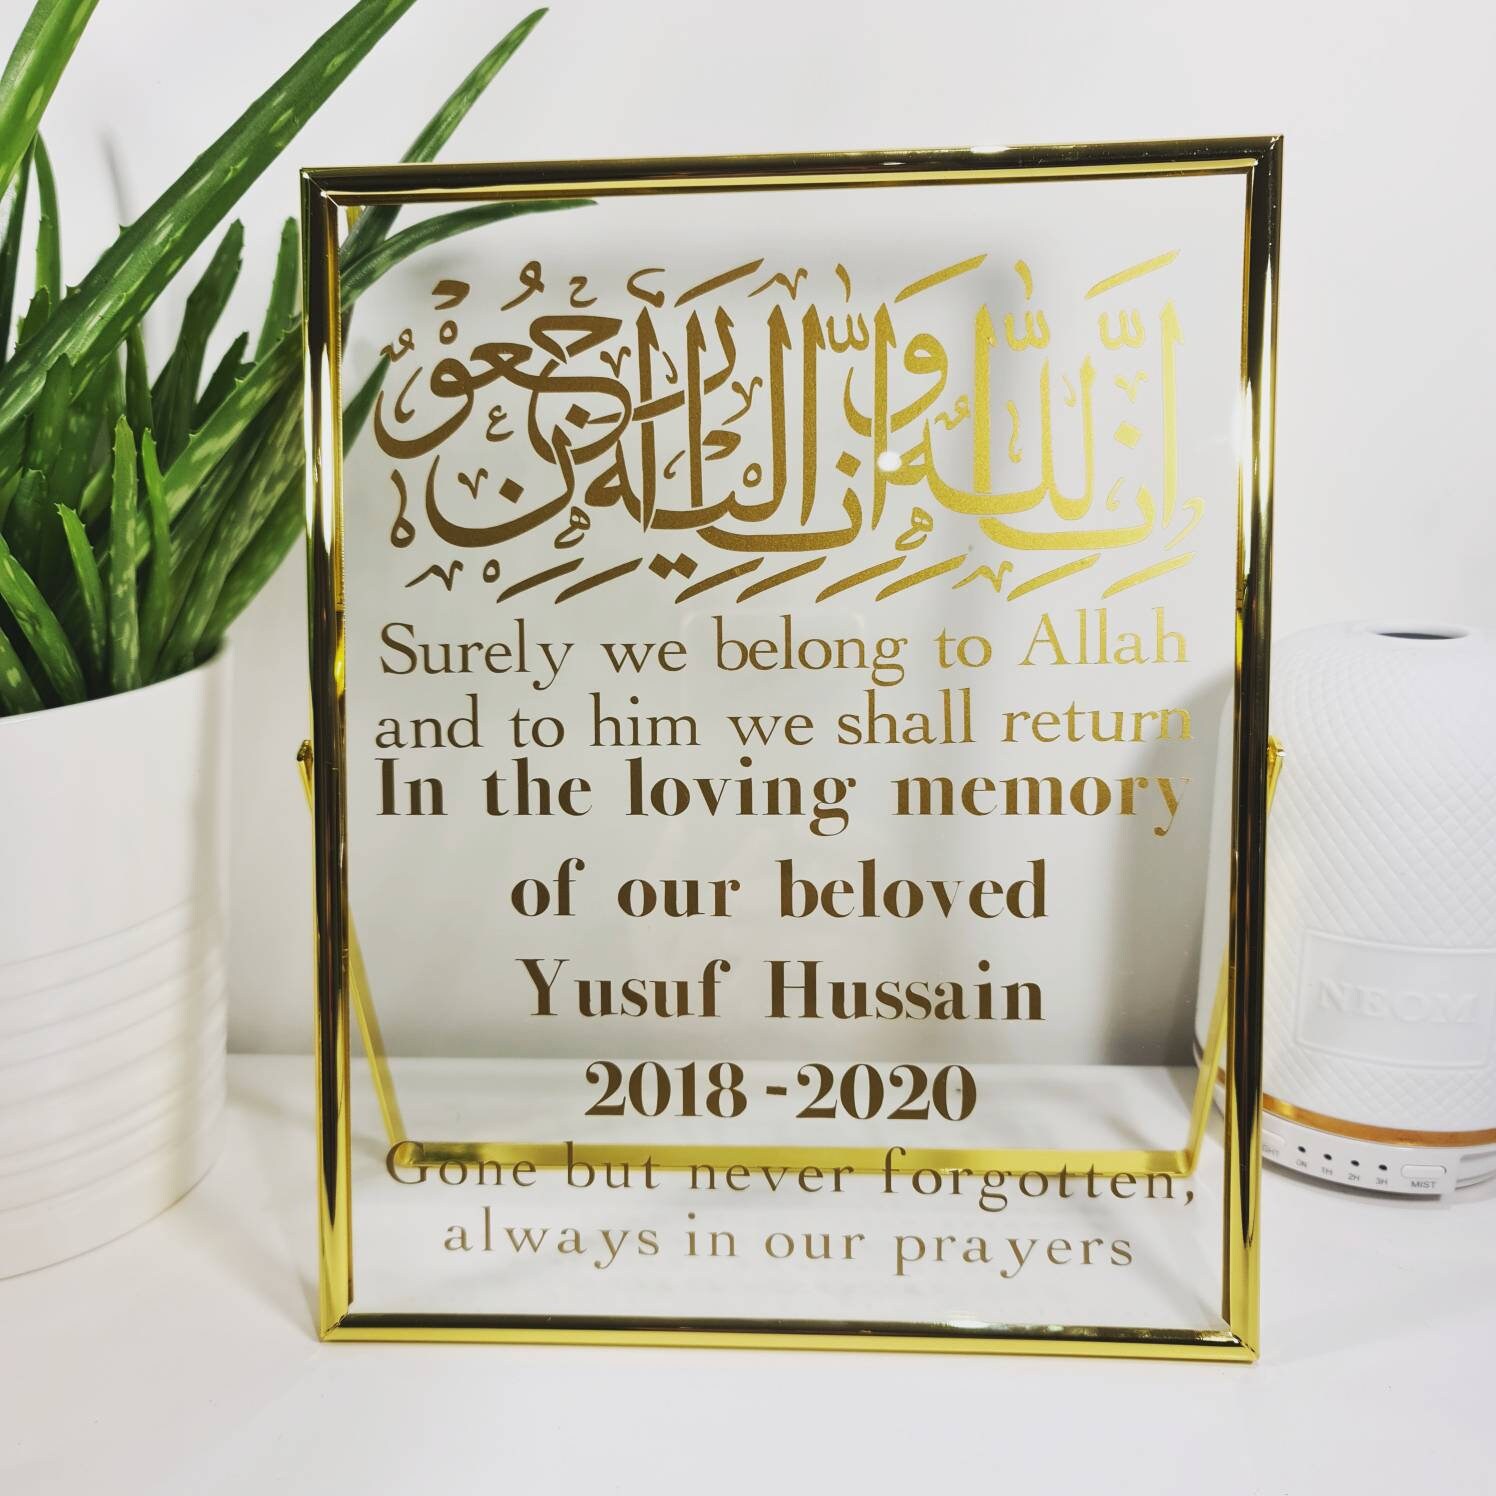 إِنَّا لِلَّهِ وَإِنَّا إِلَيْهِ رَاجِعُونَ
Surely we belong to Allah
and to him we shall return
In the loving memory
of our beloved
Yusuf Hussain
2018 - 2020
Gone but never forgotten,
always in our prayers
NEOM
ON 1H 2H 3H MIST